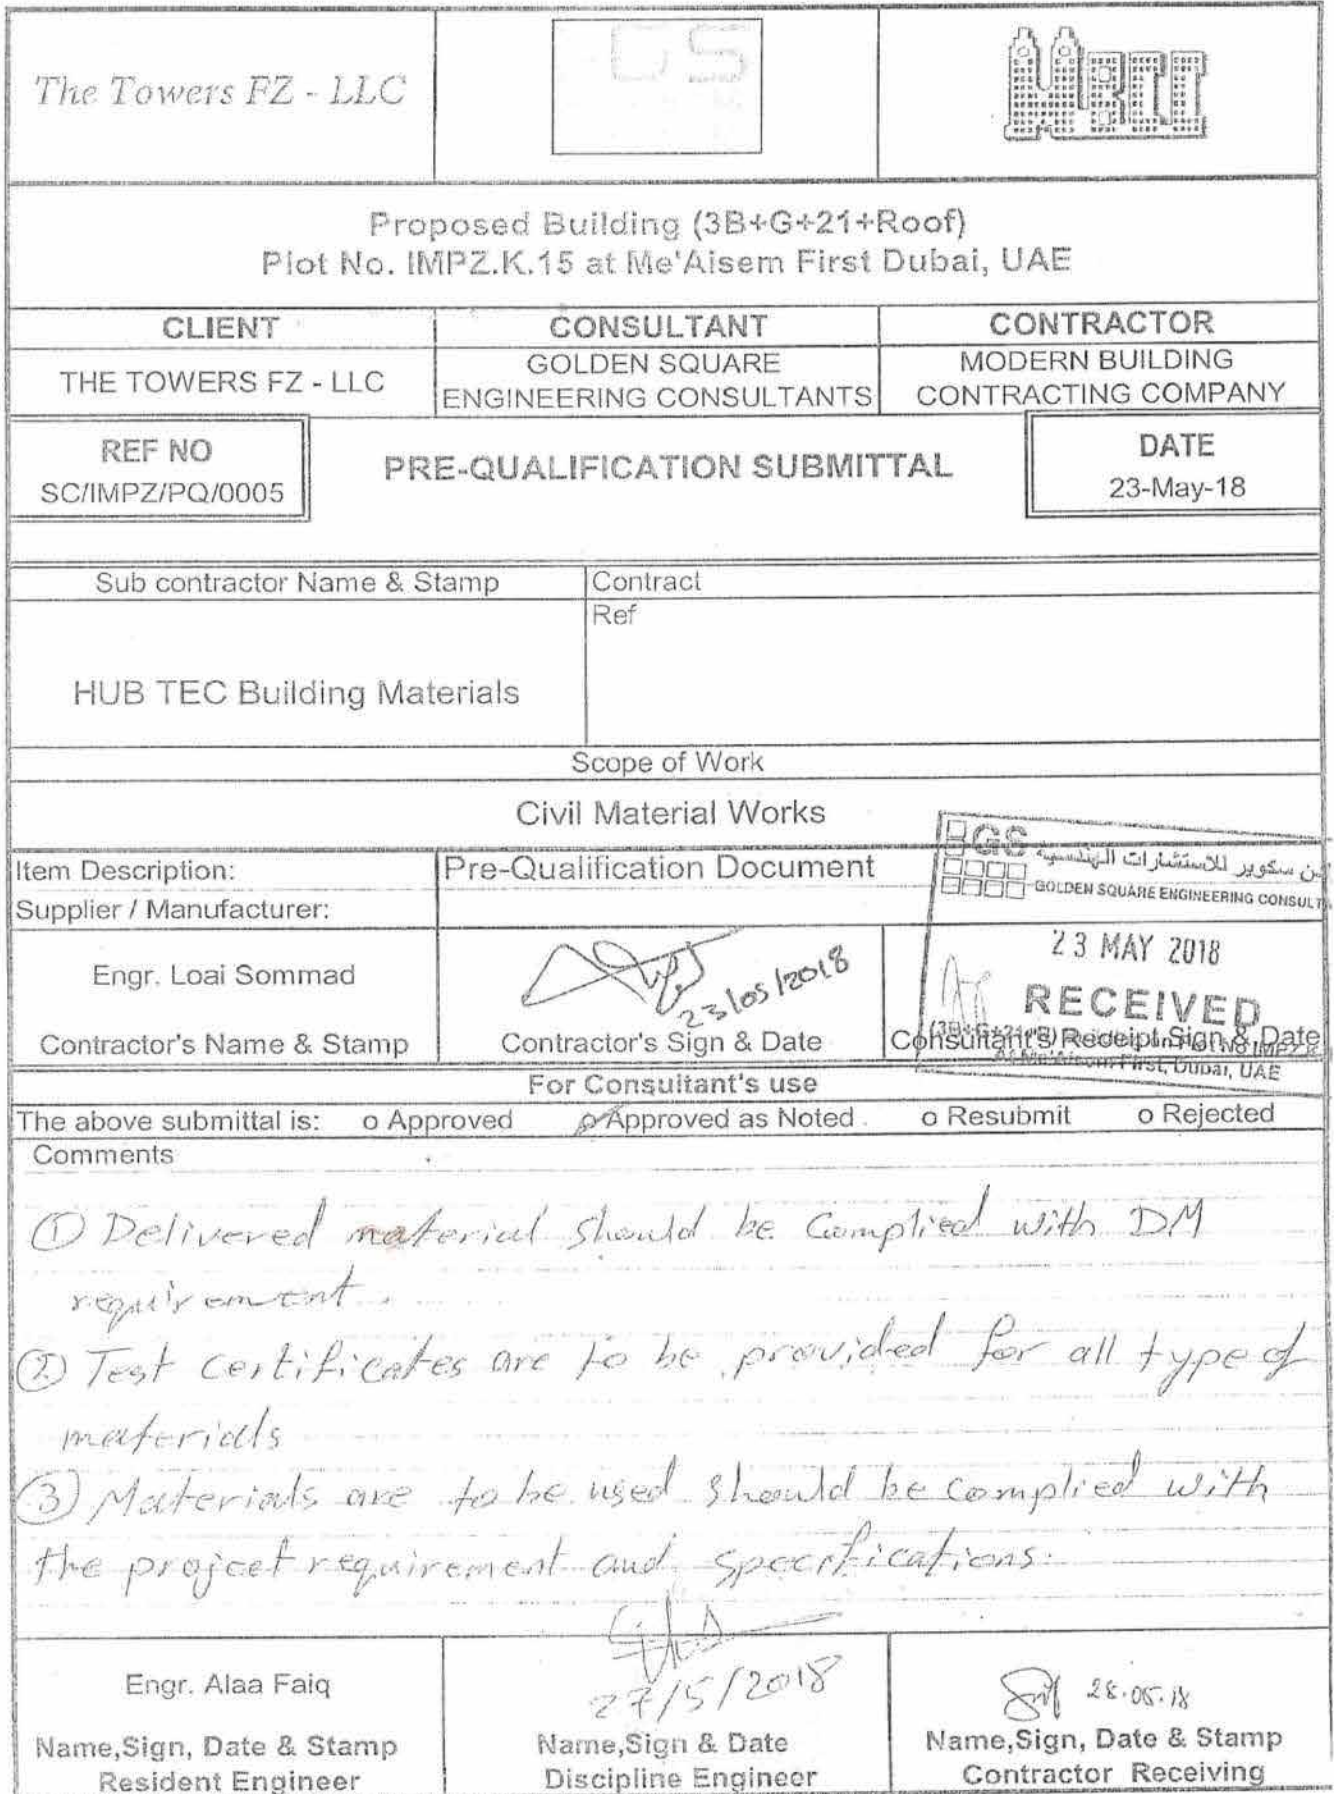 The Towers FZ - LLC
GS
MBCC
Proposed Building (3B+G+21+Roof)
Plot No. IMPZ.K.15 at Me'Aisem First Dubai, UAE
CLIENT
CONSULTANT
CONTRACTOR
THE TOWERS FZ - LLC
GOLDEN SQUARE
ENGINEERING CONSULTANTS
MODERN BUILDING
CONTRACTING COMPANY
REF NO
SC/IMPZ/PQ/0005
PRE-QUALIFICATION SUBMITTAL
DATE
23-May-18
Sub contractor Name & Stamp
Contract
Ref
HUB TEC Building Materials
Scope of Work
Civil Material Works
Item Description:
Pre-Qualification Document
Supplier / Manufacturer:
GS
سكوير للاستشارات الهندسية
GOLDEN SQUARE ENGINEERING CONSULT
23 MAY 2018
RECEIVED
At Me'Aisem First, Dubai, UAE
Engr. Loai Sommad
23/05/2018
Contractor's Name & Stamp
Contractor's Sign & Date
Consultant's Receipt Sign & Date
For Consultant's use
The above submittal is: o Approved o Approved as Noted o Resubmit o Rejected
Comments
① Delivered material should be Complied with DM
requirement.
② Test certificates are to be provided for all type of
materials
③ Materials are to be used should be complied with
the project requirement and specifications.
Engr. Alaa Faiq
27/5/2018
28.05.18
Name,Sign, Date & Stamp
Resident Engineer
Name,Sign & Date
Discipline Engineer
Name,Sign, Date & Stamp
Contractor Receiving